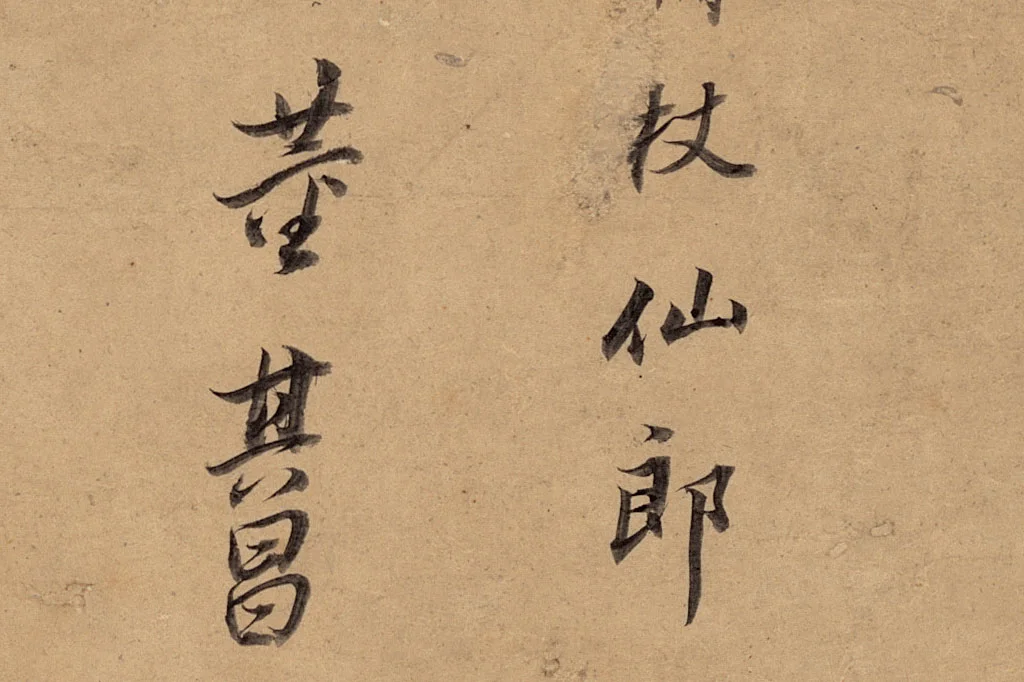 杖仙郎
董其昌